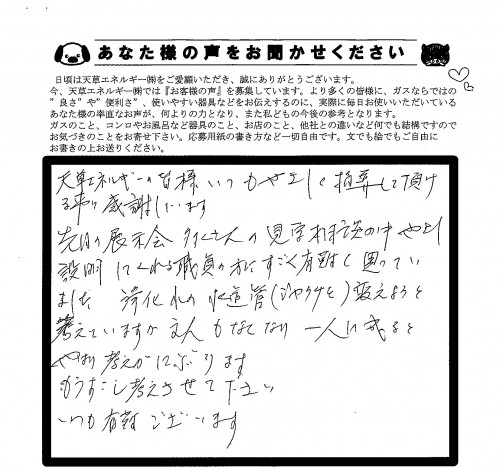 あなた様の声をお聞かせください
日頃は天草エネルギー㈱をご愛顧いただき、誠にありがとうございます。
今、天草エネルギー㈱では『お客様の声』を募集しています。より多くの皆様に、ガスならではの
"良さ"や"便利さ"、使いやすい器具などをお伝えするのに、実際に毎日お使いいただいている
あなた様の率直なお声が、何よりの力となり、また私どもの今後の参考となります。
ガスのこと、コンロやお風呂など器具のこと、お店のこと、他社との違いなど何でも結構ですので
お気づきのことをお寄せ下さい。応募用紙の書き方など一切自由です。文でも絵でもご自由に
お書きの上お送りください。
天草エネルギーの皆様いつもやさしく指導して頂け
る事感謝しています
先日の展示会 多くさんの見学相談の中やさしく
説明してくれる職員の方にすごく有難く思ってい
ました 浄化水の水道管(じゃぐちを)変えようと
考えていますが主人もなくなり一人に成ると
やはり考えがにぶります
もうすこし考えさせて下さい
いつも有難ございます